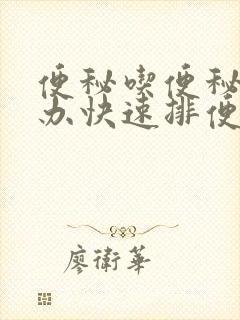 便秘喫便秘
办快速排便
廖衛華